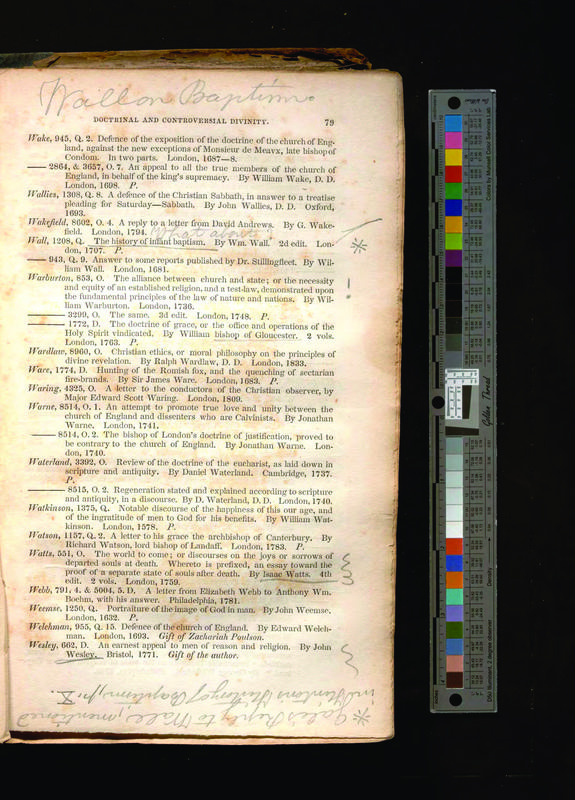 Wall on Baptism.
DOCTRINAL AND CONTROVERSIAL DIVINITY. 79
Wake, 945, Q. 2. Defence of the exposition of the doctrine of the church of Eng-
land, against the new exceptions of Monsieur de Meavx, late bishop of
Condom. In two parts. London, 1687—8.
—— 2864, & 3657, O. 7. An appeal to all the true members of the church of
England, in behalf of the king's supremacy. By William Wake, D. D.
London, 1698. P.
Wallies, 1308, Q. 8. A defence of the Christian Sabbath, in answer to a treatise
pleading for Saturday—Sabbath. By John Wallies, D. D. Oxford,
1693.
Wakefield, 8602, O. 4. A reply to a letter from David Andrews. By G. Wake-
field. London, 1794. What about?
Wall, 1208, Q. The history of infant baptism. By Wm. Wall. 2d edit. Lon-
don, 1707. P. *
—— 943, Q. 9. Answer to some reports published by Dr. Stillingfleet. By Wil-
liam Wall. London, 1681.
Warburton, 853, O. The alliance between church and state; or the necessity
and equity of an established religion, and a test-law, demonstrated upon
the fundamental principles of the law of nature and nations. By Wil-
liam Warburton. London, 1736.
—— 3299, O. The same. 3d edit. London, 1748. P.
—— 1772, D. The doctrine of grace, or the office and operations of the
Holy Spirit vindicated. By William bishop of Gloucester. 2 vols.
London, 1763. P.
Wardlaw, 8960, O. Christian ethics, or moral philosophy on the principles of
divine revelation. By Ralph Wardlaw, D. D. London, 1833.
Ware, 1774, D. Hunting of the Romish fox, and the quenching of sectarian
fire-brands. By Sir James Ware. London, 1683. P.
Waring, 4325, O. A letter to the conductors of the Christian observer, by
Major Edward Scott Waring. London, 1809.
Warne, 8514, O. 1. An attempt to promote true love and unity between the
church of England and dissenters who are Calvinists. By Jonathan
Warne. London, 1741.
—— 8514, O. 2. The bishop of London's doctrine of justification, proved to
be contrary to the church of England. By Jonathan Warne. Lon-
don, 1740.
Waterland, 3392, O. Review of the doctrine of the eucharist, as laid down in
scripture and antiquity. By Daniel Waterland. Cambridge, 1737.
P.
—— 8515, O. 2. Regeneration stated and explained according to scripture
and antiquity, in a discourse. By D. Waterland, D. D. London, 1740.
Watkinson, 1375, Q. Notable discourse of the happiness of this our age, and
of the ingratitude of men to God for his benefits. By William Wat-
kinson. London, 1578. P.
Watson, 1157, Q. 2. A letter to his grace the archbishop of Canterbury. By
Richard Watson, lord bishop of Landaff. London, 1783. P.
Watts, 551, O. The world to come; or discourses on the joys or sorrows of
departed souls at death. Whereto is prefixed, an essay toward the
proof of a separate state of souls after death. By Isaac Watts. 4th
edit. 2 vols. London, 1759.
Webb, 791, 4. & 5004, 5. D. A letter from Elizabeth Webb to Anthony Wm.
Boehm, with his answer. Philadelphia, 1781.
Weemse, 1250, Q. Portraiture of the image of God in man. By John Weemse.
London, 1632. P.
Welchman, 955, Q. 15. Defence of the church of England. By Edward Welch-
man. London, 1693. Gift of Zachariah Poulson.
Wesley, 662, D. An earnest appeal to men of reason and religion. By John
Wesley. Bristol, 1771. Gift of the author.
* Gale's Reply to Wall, mentioned
in Hinton's History of Baptism, p. X.